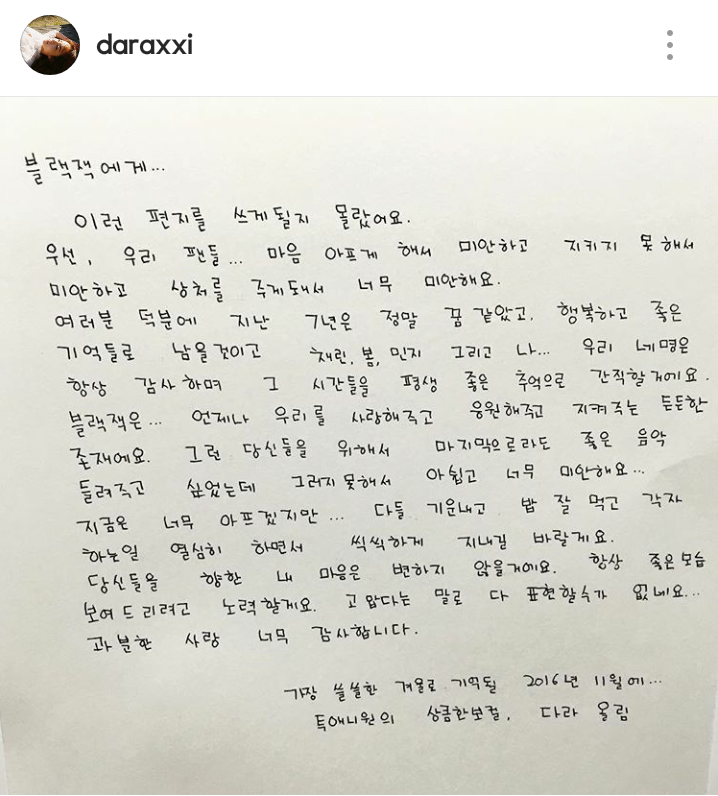 daraxxi
블랙잭에게...
이런 편지를 쓰게될지 몰랐어요.
우선, 우리 팬들... 마음 아프게 해서 미안하고 지키지 못해서
미안하고 상처를 주게돼서 너무 미안해요.
여러분 덕분에 지난 7년은 정말 꿈같았고, 행복하고 좋은
기억들로 남을것이고 채린, 봄, 민지 그리고 나... 우리 네명은
항상 감사하며 그 시간들을 평생 좋은 추억으로 간직할거에요.
블랙잭은... 언제나 우리를 사랑해주고 응원해주고 지켜주는 든든한
존재에요. 그런 당신들을 위해서 마지막으로라도 좋은 음악
들려주고 싶었는데 그러지못해서 아쉽고 너무 미안해요...
지금은 너무 아프겠지만... 다들 기운내고 밥 잘 먹고 각자
하는일 열심히 하면서 씩씩하게 지내길 바랄게요.
당신들을 향한 내 마음은 변하지 않을거에요. 항상 좋은모습
보여드리려고 노력할게요. 고맙다는 말로 다 표현할수가 없네요...
과분한 사랑 너무 감사합니다.
가장 쓸쓸한 겨울로 기억될 2016년 11월에...
투애니원의 상큼한보컬, 다라 올림